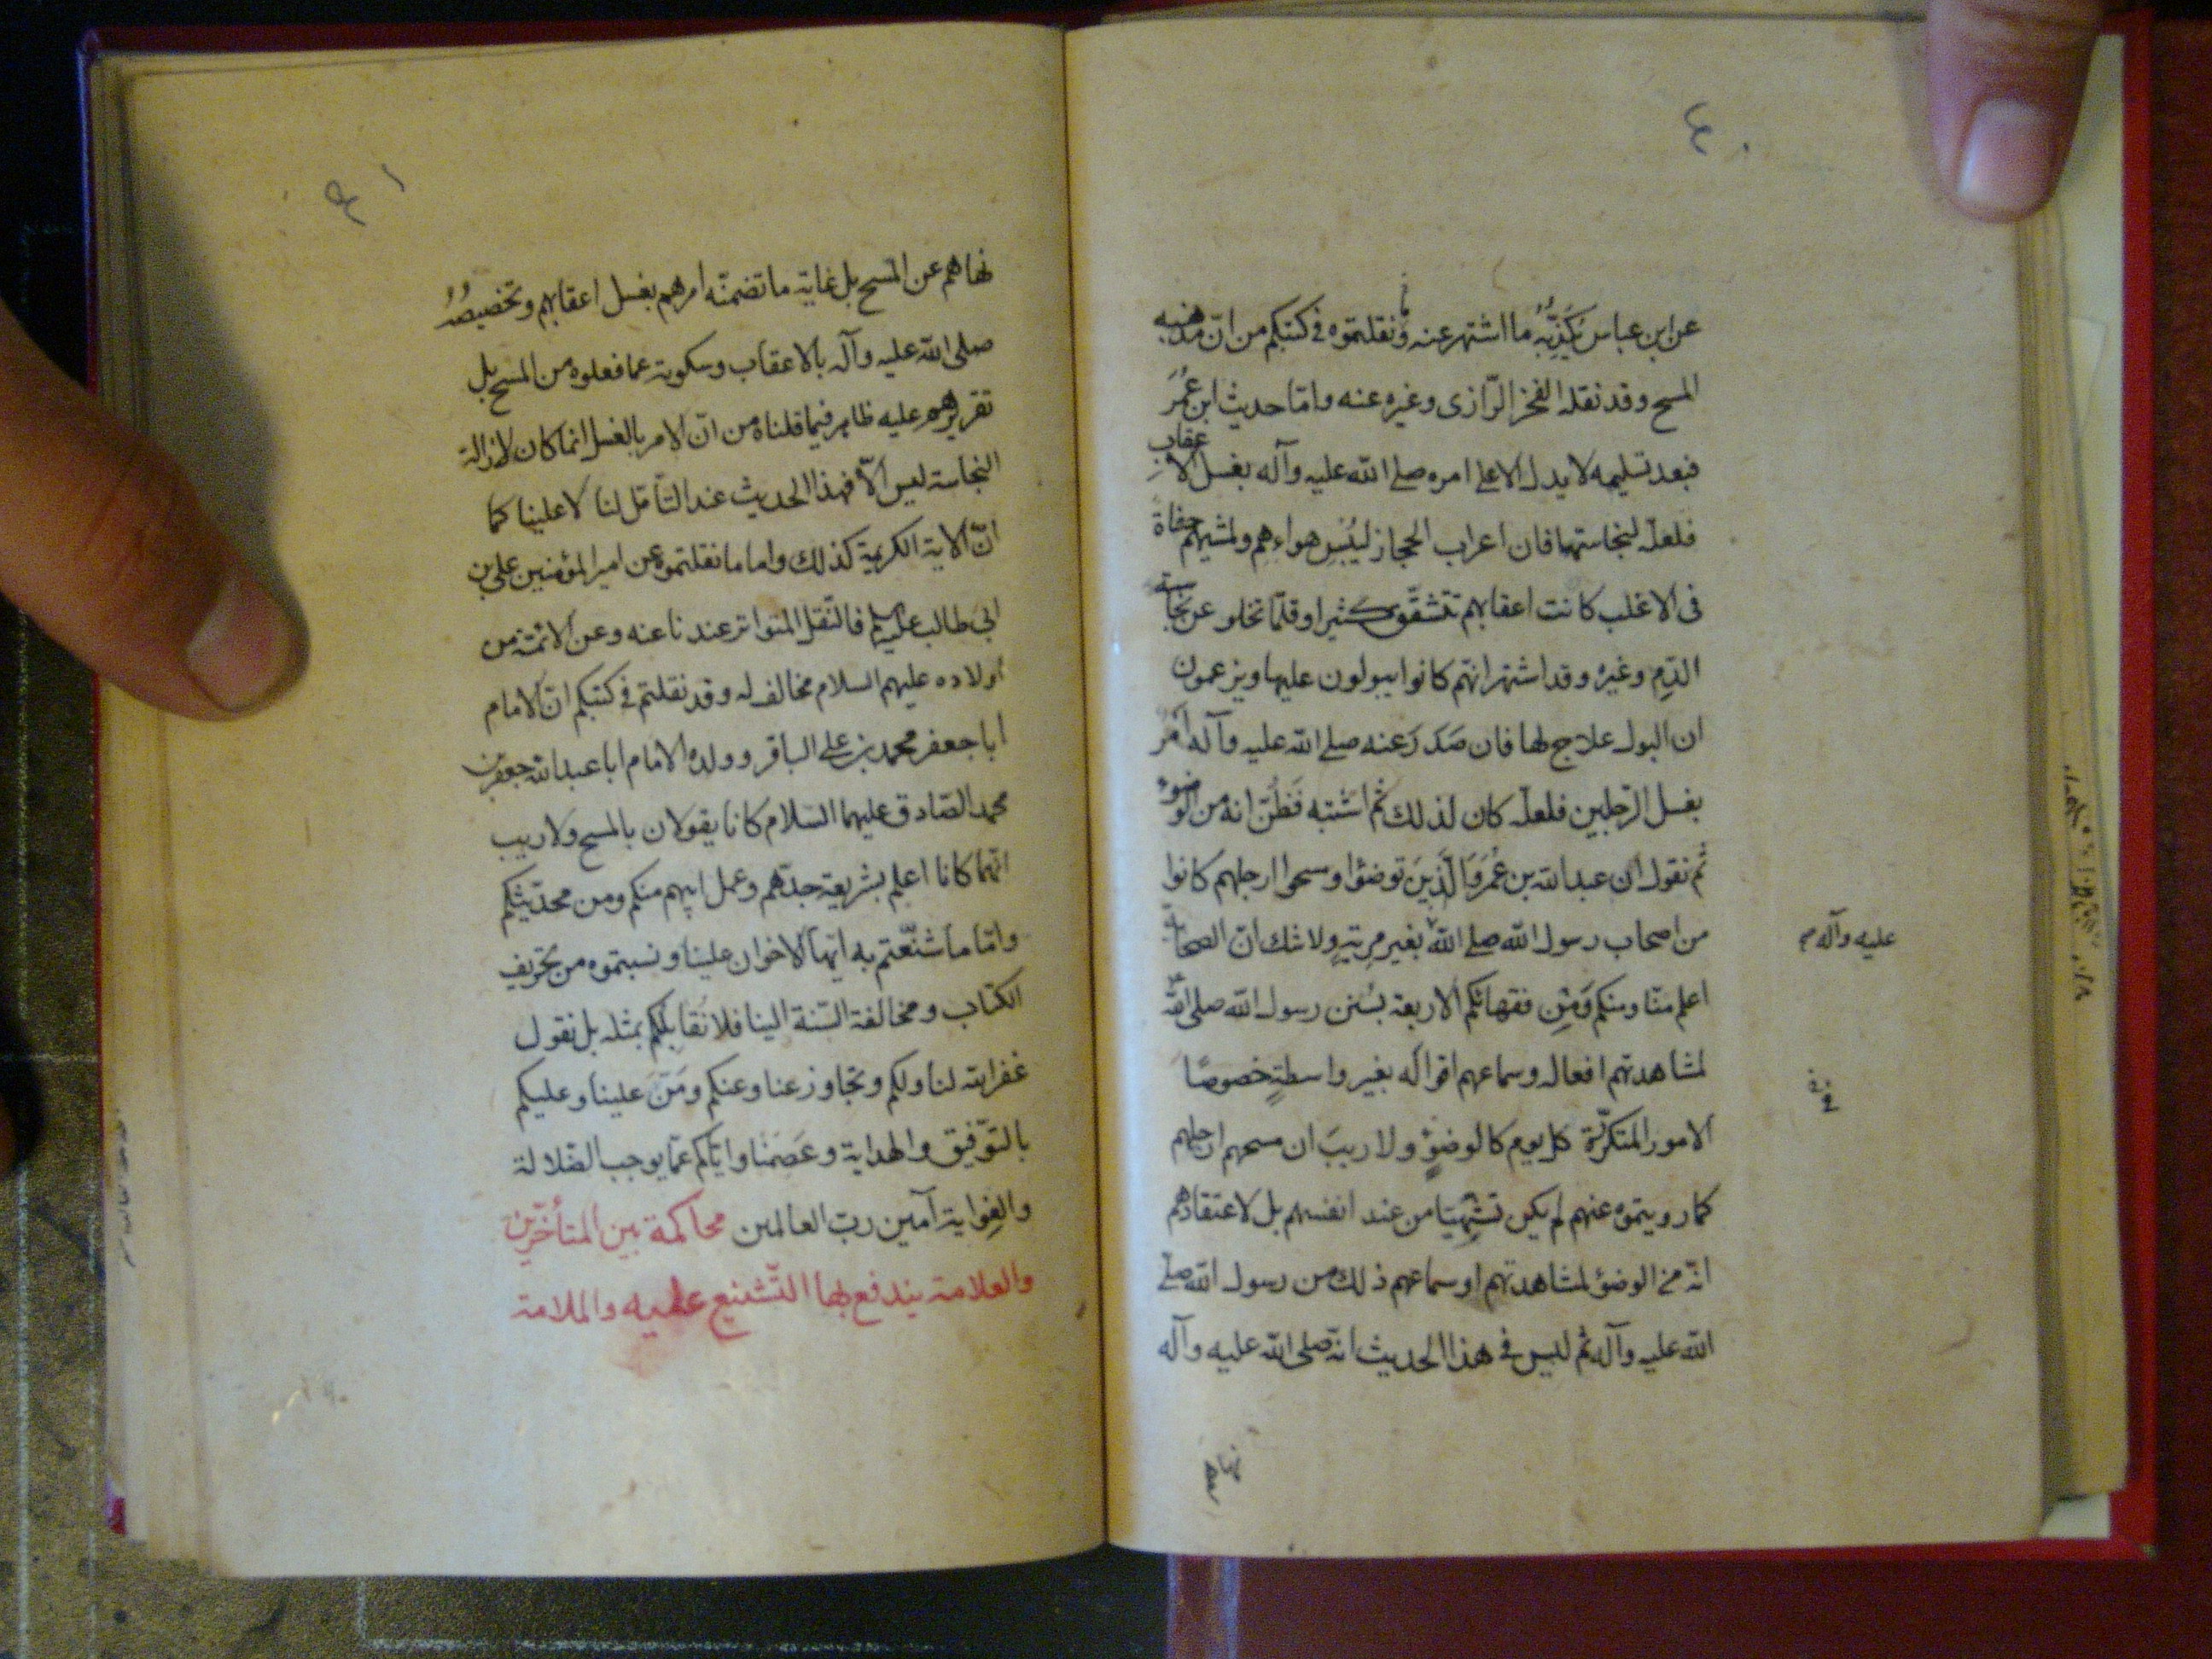 ٤٠
عن ابن عباس يكذبه ما اشتهر عنه ونقلتموه في كتبكم من ان مذهبه
المسح وقد نقله الفخر الرّازى وغيره عنه وامّا حديث ابن عُمَر
فبعد تسليمه لا يدل الا على امره صلى الله عليه وآله بغسل الاعقاب
فلعله لنجاستها فان اعراب الحجاز ليُبْسِ هواءهم ولمشيهم حفاة
فى الاغلب كانت اعقابهم تتشقّق كثيرا وقلّما تخلو عن نجاسة
الدّم وغيره وقد اشتهر انهم كانوا يبولون عليها ويزعمون
ان البول علاج لها فان صَدَرَ عنه صلى الله عليه وآله أمْر
بغسل الرّجلين فلعله كان لذلك ثم اشتبه فَظُنّ انه من الوضوء
ثم نقول ان عبد الله بن عُمَر وَالَّذَينَ توضؤا ومسحوا ارجلهم كانوا
من اصحاب رسول الله صلى الله بغير مِريَةٍ ولا شك ان الصحابة
عليه وآله م
اعلم منّا ومنكم وَمِن فقهائكم الاربعة بسُنن رسول الله صلى الله
لمشاهدتهم افعاله وسماعهم اقواله بغير واسطةٍ خصوصًا
الامور المتكرّرة كل يوم كالوضوءِ ولا ريبَ ان مسحهم ارجلهم
كما رويتموه عنهم لم يكن تشهّيا من عند انفسهم بل لاعتقادهم
انّه من الوضوء لمشاهدتهم او سماعهم ذلك من رسول الله صلى
الله عليه وآله ثم ليس في هذا الحديث انّه صلى الله عليه وآله
نهاهم
٤١
نهاهم عن المسح بل غاية ما تضمنّه امرهم بغسل اعقابهم وتخصيصُهُ
صلى الله عليه وآله بالاعقاب وسكوته عما فعلوه من المسح بل
تقريرهم عليه ظاهر فيما قلناه من انّ الامر بالغسل انما كان لازالة
النجاسة ليس الّا فهذا الحديث عند التأمّل لنا لا علينا كما
انّ الاية الكريمة كذلك واما ما نقلتموه عن امير المؤمنين على بن
ابى طالب عليه السلم فالنّقل المتواتر عندنا عنه وعن الائمّة من
اولاده عليهم السلام مخالف له وقد نقلتم في كتبكم ان الامام
ابا جعفر محمد بن على الباقر وولده الامام ابا عبد الله جعفر بن
محمد الصّادق عليهما السّلام كانا يقولان بالمسح ولا ريب
انهما كانا اعلم بشريعة جدّهم وعمل ابيهم منكم ومن محدّثيكم
وامّا ما شنّعتم به ايها الاخوان علينا ونسبتموه من تحريف
الكتاب ومخالفة السّنة الينا فلا نُقابلُكم بمثله بل نقول
غفر الله لنا ولكم وتجاوز عنا وعنكم ومَنّ علينا وعليكم
بالتوّفيق والهداية وعَصَمَنا وايّاكم عمّا يوجب الضّلالة
والغواية آمين ربّ العالمين محاكمة بين المتأخّرين
والعلامة يندفع بها التّشنيع عليه والملامة